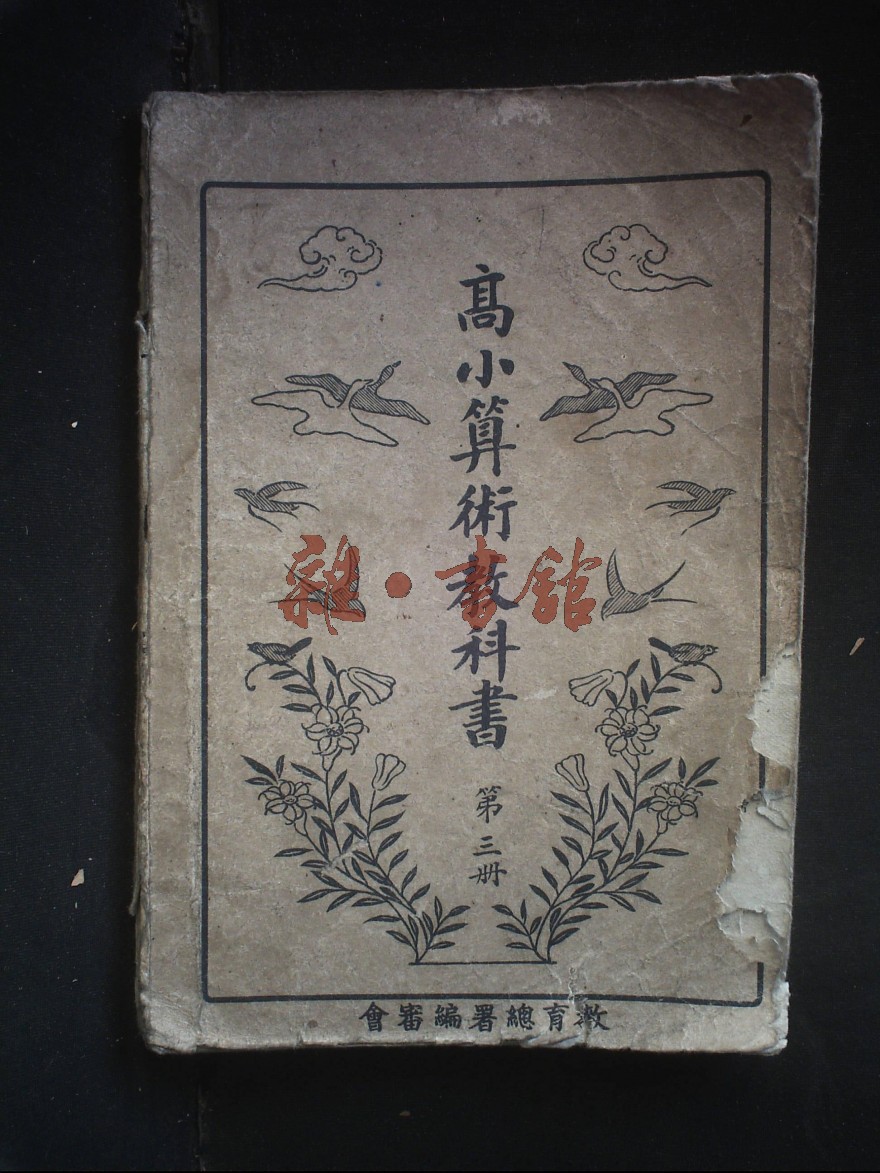 高小算術教科書
第三册
教育總署編審會
雜·書館